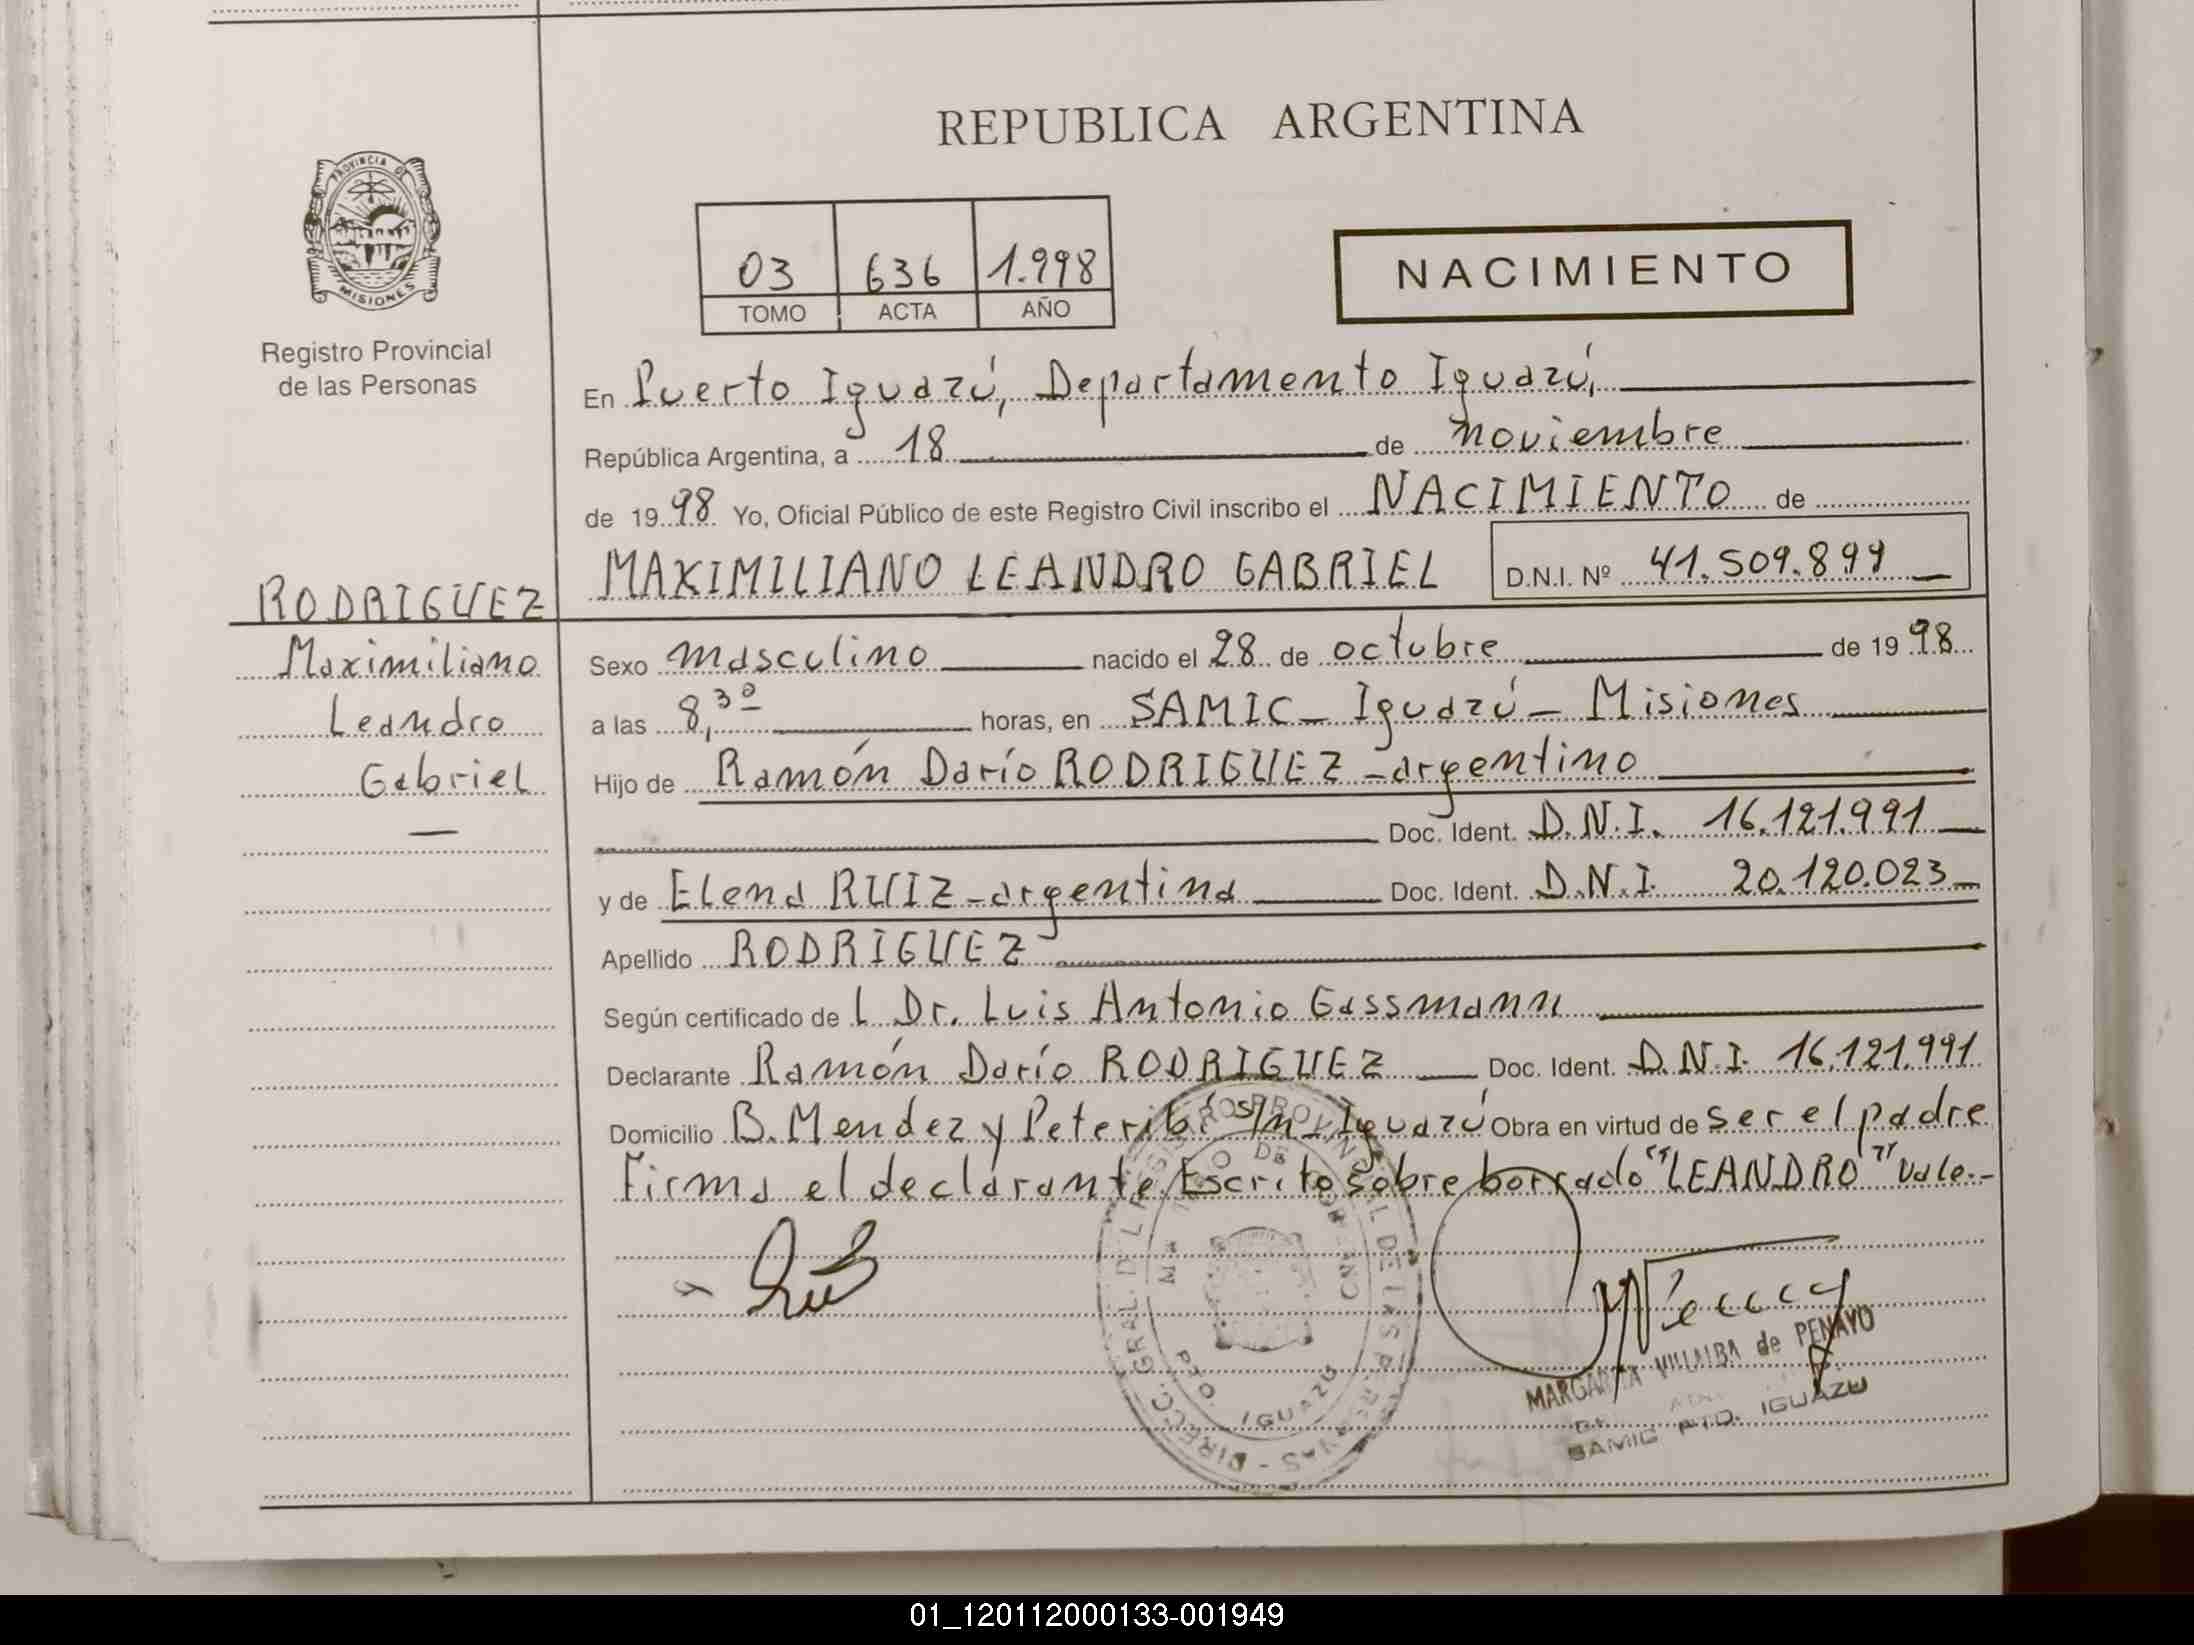 REPUBLICA ARGENTINA
PROVINCIA DE
MISIONES
Registro Provincial
de las Personas
03 636 1.998
TOMO ACTA AÑO
NACIMIENTO
En Puerto Iguazú, Departamento Iguazú,
República Argentina, a 18 de noviembre
de 1998 Yo, Oficial Público de este Registro Civil inscribo el NACIMIENTO de
MAXIMILIANO LEANDRO GABRIEL D.N.I. Nº 41.509.899
RODRIGUEZ
Maximiliano
Leandro
Gabriel
Sexo masculino nacido el 28 de octubre de 1998
a las 8,30 horas, en SAMIC - Iguazú - Misiones
Hijo de Ramón Darío RODRIGUEZ - argentino
Doc. Ident. D.N.I. 16.121.991
y de Elena RUIZ - argentina Doc. Ident. D.N.I. 20.120.023
Apellido RODRIGUEZ
Según certificado de l Dr. Luis Antonio Gassmann
Declarante Ramón Darío RODRIGUEZ Doc. Ident. D.N.I. 16.121.991
Domicilio B. Mendez y Peteribí s/n - Iguazú Obra en virtud de ser el padre
Firma el declarante. Escrito sobre borrado "LEANDRO" Vale.-
DIRECC. GRAL. DEL REGISTRO PROVINCIAL DE LAS PERSONAS
PTO. IGUAZU
MARGARITA VILLALBA de PENAYO
SAMIC PTO. IGUAZU
01_120112000133-001949